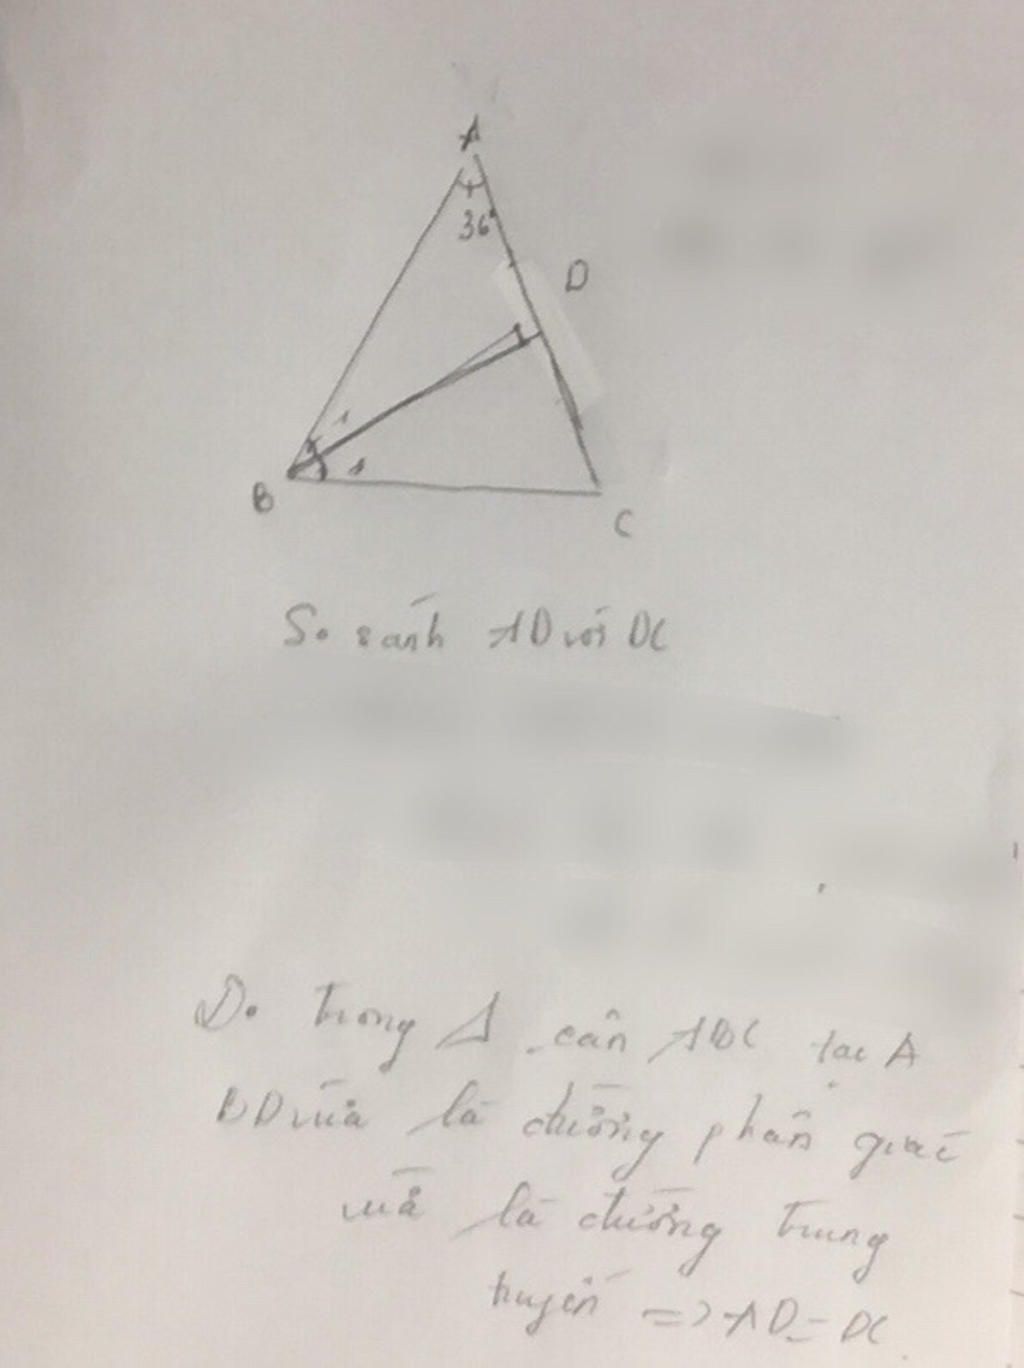 A
36°
D
1
1
B
C
So sánh AD với DC
Do trong Δ cân ABC tại A
BD vừa là đường phân giác
vừa là đường trung
tuyến => AD = DC